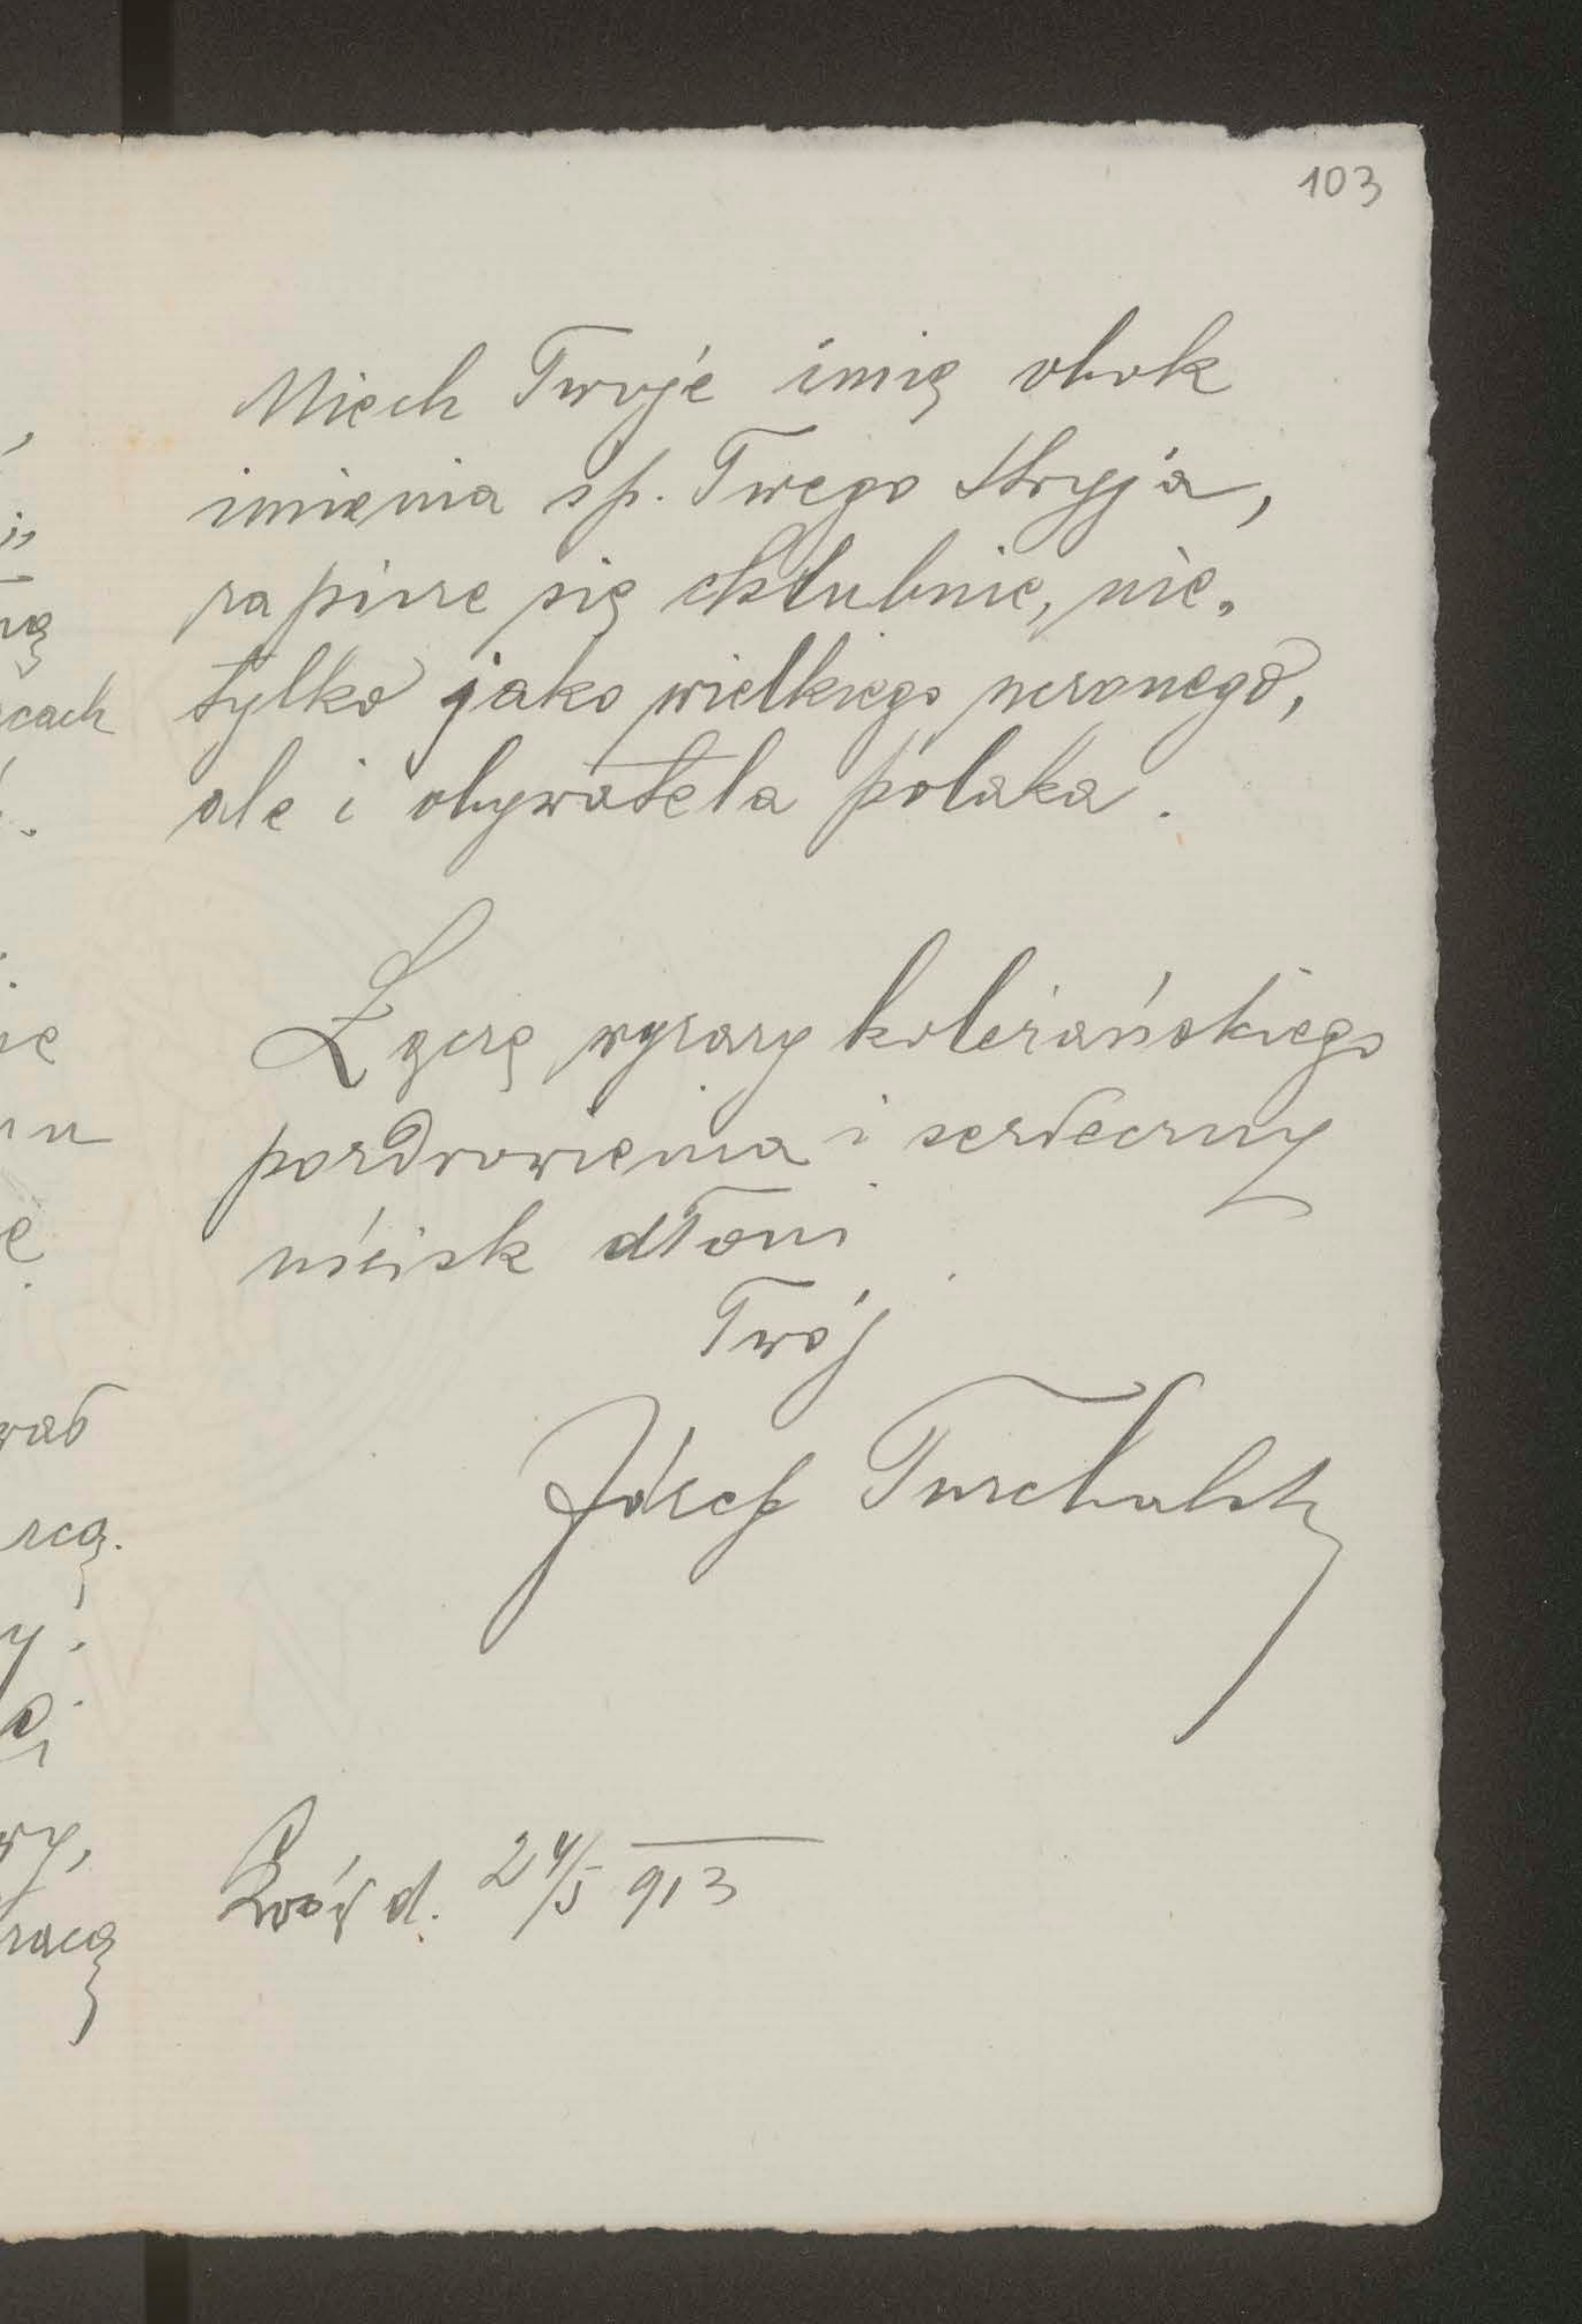 103
Niech Twoje imię obok
imienia sp. Twego Stryja,
zapisze się chlubnie, nie-
tylko jako wielkiego uczonego,
ale i obywatela polaka.
Łączę wyrazy koleżańskiego
pozdrowienia i serdeczny
uścisk dłoni
Twój
Józef
d. 24/5 913
cach
rzą.